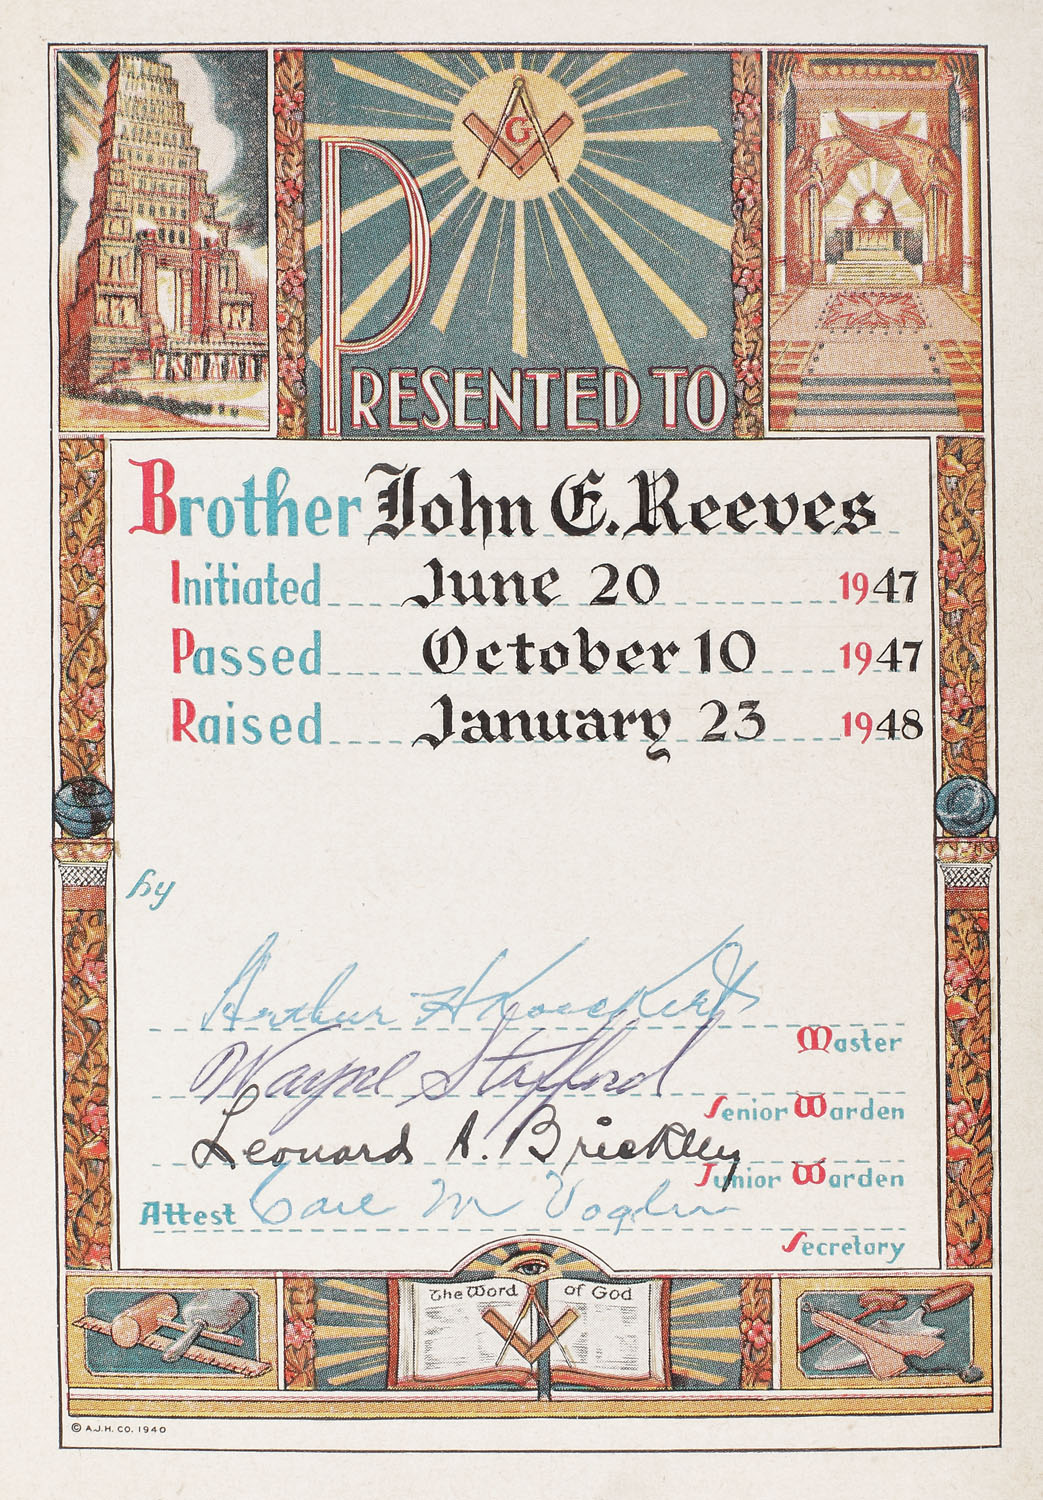 G
PRESENTED TO
Brother John E. Reeves
Initiated June 20 1947
Passed October 10 1947
Raised January 23 1948
by
Arthur H
Master
Wayne Stafford
Senior Warden
Leonard A. Brickley
Junior Warden
Attest Carl M
Secretary
The Word of God
© A.J.H. CO. 1940